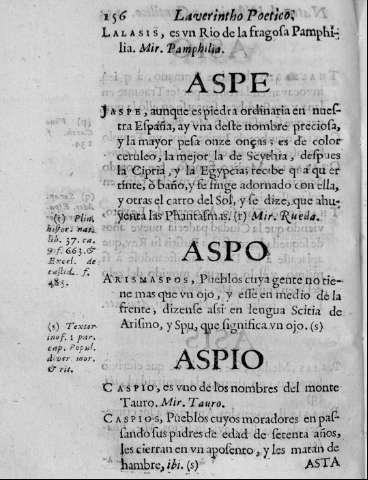 156 Laverintho Poetico,
LALASIS, es vn Rio de la fragosa Pamphi-
lia. Mir. Pamphilia.
ASPE
JASPE, aunque es piedra ordinaria en nues-
tra España, ay vna deste nombre preciosa,
y la mayor pesa onze onças; es de color
ceruleo, la mejor la de Scythia, despues
la Cipria, y la Egypcia; recibe qualquier
tinte, ò baño, y se finge adornado con ella,
y otras el carro del Sol, y se dize, que ahu-
yenta las Phantasmas. (r) Mir. Rueda.
(r) Plin.
histor. nat.
lib. 37. ca.
9. f. 663. &
Excel. de
castid. f.
485.
ASPO
ARISMASPOS, Pueblos cuya gente no tie-
ne mas que vn ojo, y esse en medio de la
frente, dizense assi en lengua Scitia de
Arismo, y Spu, que significa vn ojo. (s)
(s) Textor
in of. 1 par.
cap. Popul.
diver. mor.
& rit.
ASPIO
CASPIO, es vno de los nombres del monte
Tauro. Mir. Tauro.
CASPIOS, Pueblos cuyos moradores en pas-
sando sus padres de edad de setenta años,
les cierran en vn aposento, y les matan de
hambre, ibi. (s) ASTA